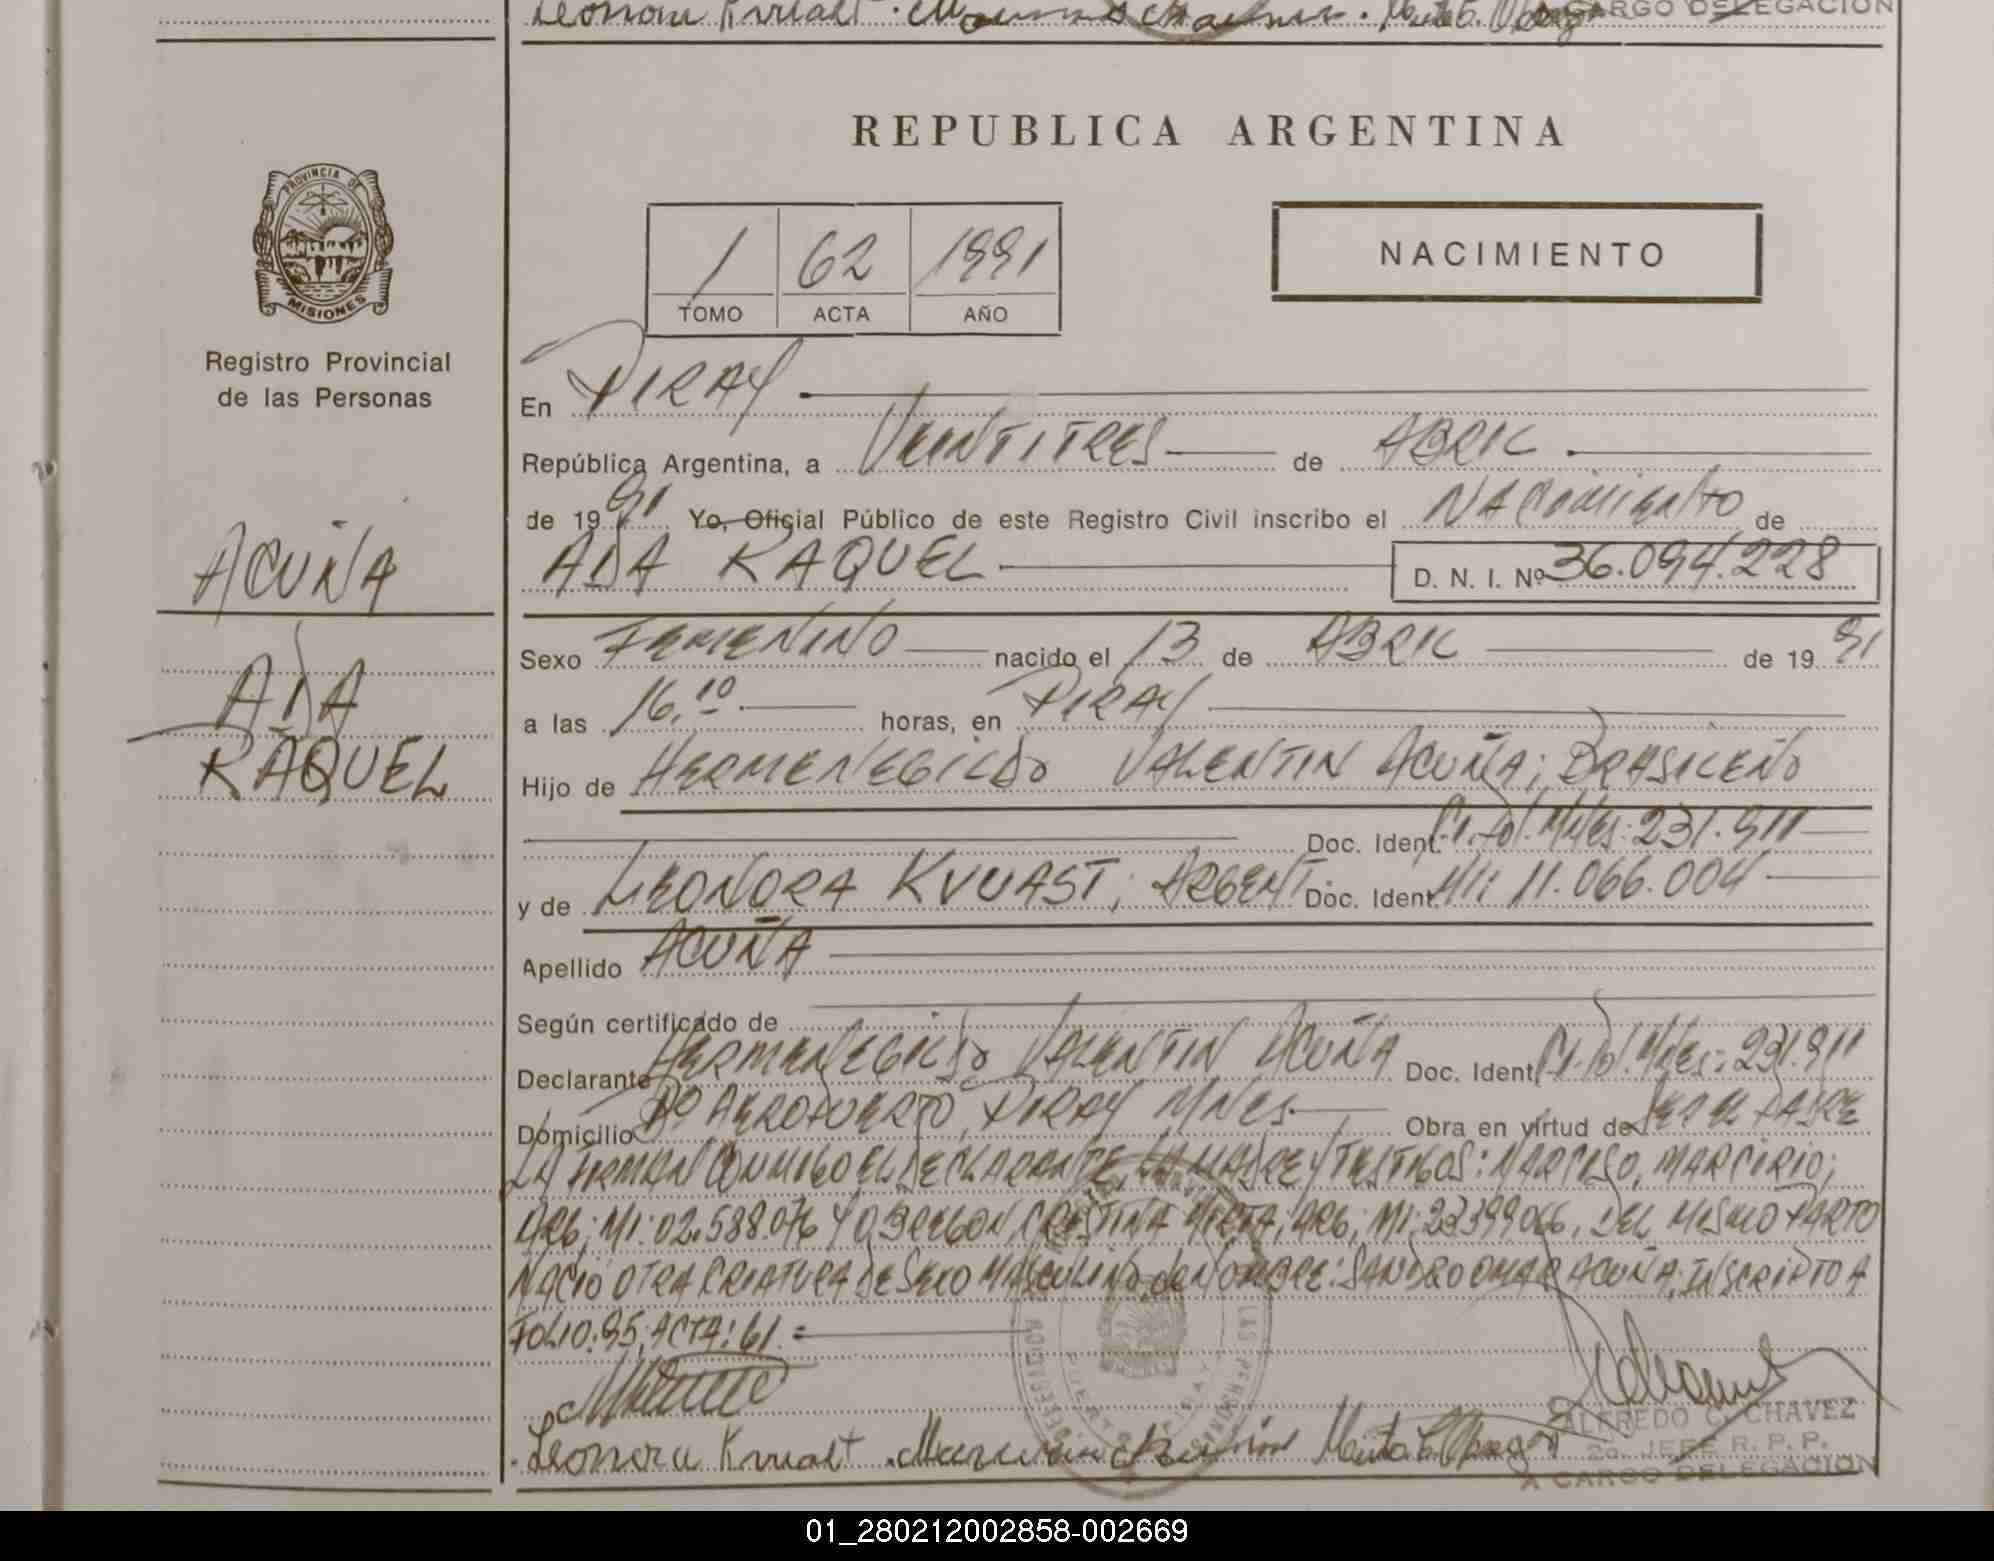 Leonora Kvualt
A CARGO DELEGACION
PROVINCIA DE
MISIONES
Registro Provincial
de las Personas
ACUÑA
ADA
RAQUEL
REPUBLICA ARGENTINA
1 62 1991
TOMO ACTA AÑO
NACIMIENTO
En PIRAY
República Argentina, a VEINTITRES de ABRIL
de 1991 Yo, Oficial Público de este Registro Civil inscribo el NACIMIENTO de
ADA RAQUEL D. N. I. Nº 36.094.228
Sexo FEMENINO nacido el 13 de ABRIL de 1991
a las 16,10 horas, en PIRAY
Hijo de HERMENEGILDO VALENTIN ACUÑA; BRASILEÑO
Doc. Ident. C.I. Pol. Mnes: 231.911
y de LEONORA KVUAST; ARGENT. Doc. Ident. MI: 11.066.004
Apellido ACUÑA
Según certificado de
Declarante HERMENEGILDO VALENTIN ACUÑA Doc. Ident. C.I. Pol. Mnes: 231.911
Domicilio Bº AEROPUERTO, PIRAY MNES. Obra en virtud de SER EL PADRE
LA FIRMAN CONMIGO EL DECLARANTE, LA MADRE Y TESTIGOS: NARCISO, MARCIRIO;
ARG; MI: 02.588.076 Y OBREGON, CRISTINA MIRTA; ARG; MI: 23399066, DEL MISMO PARTO
NACIO OTRA CRIATURA DE SEXO MASCULINO, de NOMBRE: SANDRO OMAR ACUÑA; INSCRIPTO A
FOLIO: 95; ACTA: 61. =
Leonora Kvualt
ALFREDO C. CHAVEZ
2o. JEFE R. P. P.
A CARGO DELEGACION
01_280212002858-002669